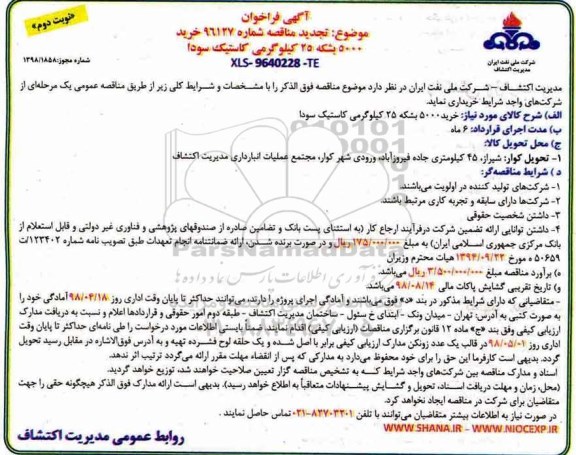 آگهی فراخوان
«نوبت دوم»
موضوع: تجدید مناقصه شماره ۹۶۱۲۷ خرید
۵۰۰۰ بشکه ۲۵ کیلوگرمی کاستیک سودا
XLS- 9640228 -TE
شماره مجوز:۱۳۹۸/۱۸۵۸
شرکت ملی نفت ایران
مدیریت اکتشاف
مدیریت اکتشاف – شرکت ملی نفت ایران در نظر دارد موضوع مناقصه فوق الذکر را با مشخصات و شرایط کلی زیر از طریق مناقصه عمومی یک مرحله‌ای از
شرکت‌های واجد شرایط خریداری نماید.
الف) شرح کالای مورد نیاز: خرید۵۰۰۰ بشکه ۲۵ کیلوگرمی کاستیک سودا
ب) مدت اجرای قرارداد: ۶ ماه
ج) محل تحویل کالا:
۱- تحویل کوار: شیراز، ۴۵ کیلومتری جاده فیروزآباد، ورودی شهر کوار، مجتمع عملیات انبارداری مدیریت اکتشاف
د ) شرایط مناقصه‌گر:
۱ - شرکت‌های تولید کننده در اولویت می‌باشند.
۲ - شرکت‌ها دارای سابقه و تجربه کاری مرتبط باشند.
۳- داشتن شخصیت حقوقی
۴- داشتن توانایی ارائه تضمین شرکت درفرآیند ارجاع کار (به استثنای پست بانک و تضامین صادره از صندوقهای پژوهشی و فناوری غیر دولتی و قابل استعلام از
بانک مرکزی جمهوری اسلامی ایران) به مبلغ ۱۷۵/۰۰۰/۰۰۰ ریال و در صورت برنده شدن، ارائه ضمانتنامه انجام تعهدات طبق تصویب نامه شماره ۱۲۳۴۰۲/ت
۵۰۶۵۹ ه مورخ ۱۳۹۴/۰۹/۲۲ هیات محترم وزیران
ه) برآورد مناقصه مبلغ ۳/۵۰۰/۰۰۰/۰۰۰ ریال می‌باشد.
و) تاریخ تقریبی گشایش پاکات مالی ۹۸/۰۸/۱۴ می‌باشد.
- متقاضیانی که دارای شرایط مذکور در بند «د» فوق می‌باشند و آمادگی اجرای پروژه را دارند، می‌توانند حداکثر تا پایان وقت اداری روز ۹۸/۰۴/۱۸ آمادگی خود را
به صورت کتبی به آدرس: تهران - میدان ونک - ابتدای خ سئول - ساختمان مدیریت اکتشاف - طبقه دوم امور حقوقی و قراردادها اعلام و نسبت به دریافت مدارک
ارزیابی کیفی وفق بند «ج» ماده ۱۲ قانون برگزاری مناقصات (ارزیابی کیفی) اقدام نمایند. می‌بایستی اطلاعات مورد درخواست را طی نامه‌ای حداکثر تا پایان وقت
اداری روز ۹۸/۰۵/۰۱ در قالب یک عدد زونکن مدارک ارزیابی کیفی برابر با اصل شده و یک حلقه لوح فشرده تهیه و به آدرس فوق‌الاشاره در مقابل رسید تحویل
گردد. بدیهی است کارفرما این حق را برای خود محفوظ می‌دارد به مدارکی که پس از انقضاء مهلت مقرر ارائه می‌گردد ترتیب اثر ندهد.
اسناد و مدارک مناقصه بین شرکت‌های واجد شرایط که به تشخیص مناقصه گزار تعیین صلاحیت خواهند شد، توزیع خواهد گردید.
(محل، زمان و مهلت دریافت اسناد، تحویل و گشایش پیشنهادات متعاقباً به اطلاع خواهد رسید). بدیهی است ارائه مدارک فوق الذکر هیچگونه حقی را جهت
متقاضیان برای شرکت در مناقصه ایجاد نخواهد کرد.
در صورت نیاز به اطلاعات بیشتر متقاضیان می‌توانند با تلفن ۸۲۷۰۳۳۰۱-۰۲۱ تماس حاصل نمایند .
WWW.SHANA.IR - WWW.NIOCEXP.IR
روابط عمومی مدیریت اکتشاف
ParsNamadData